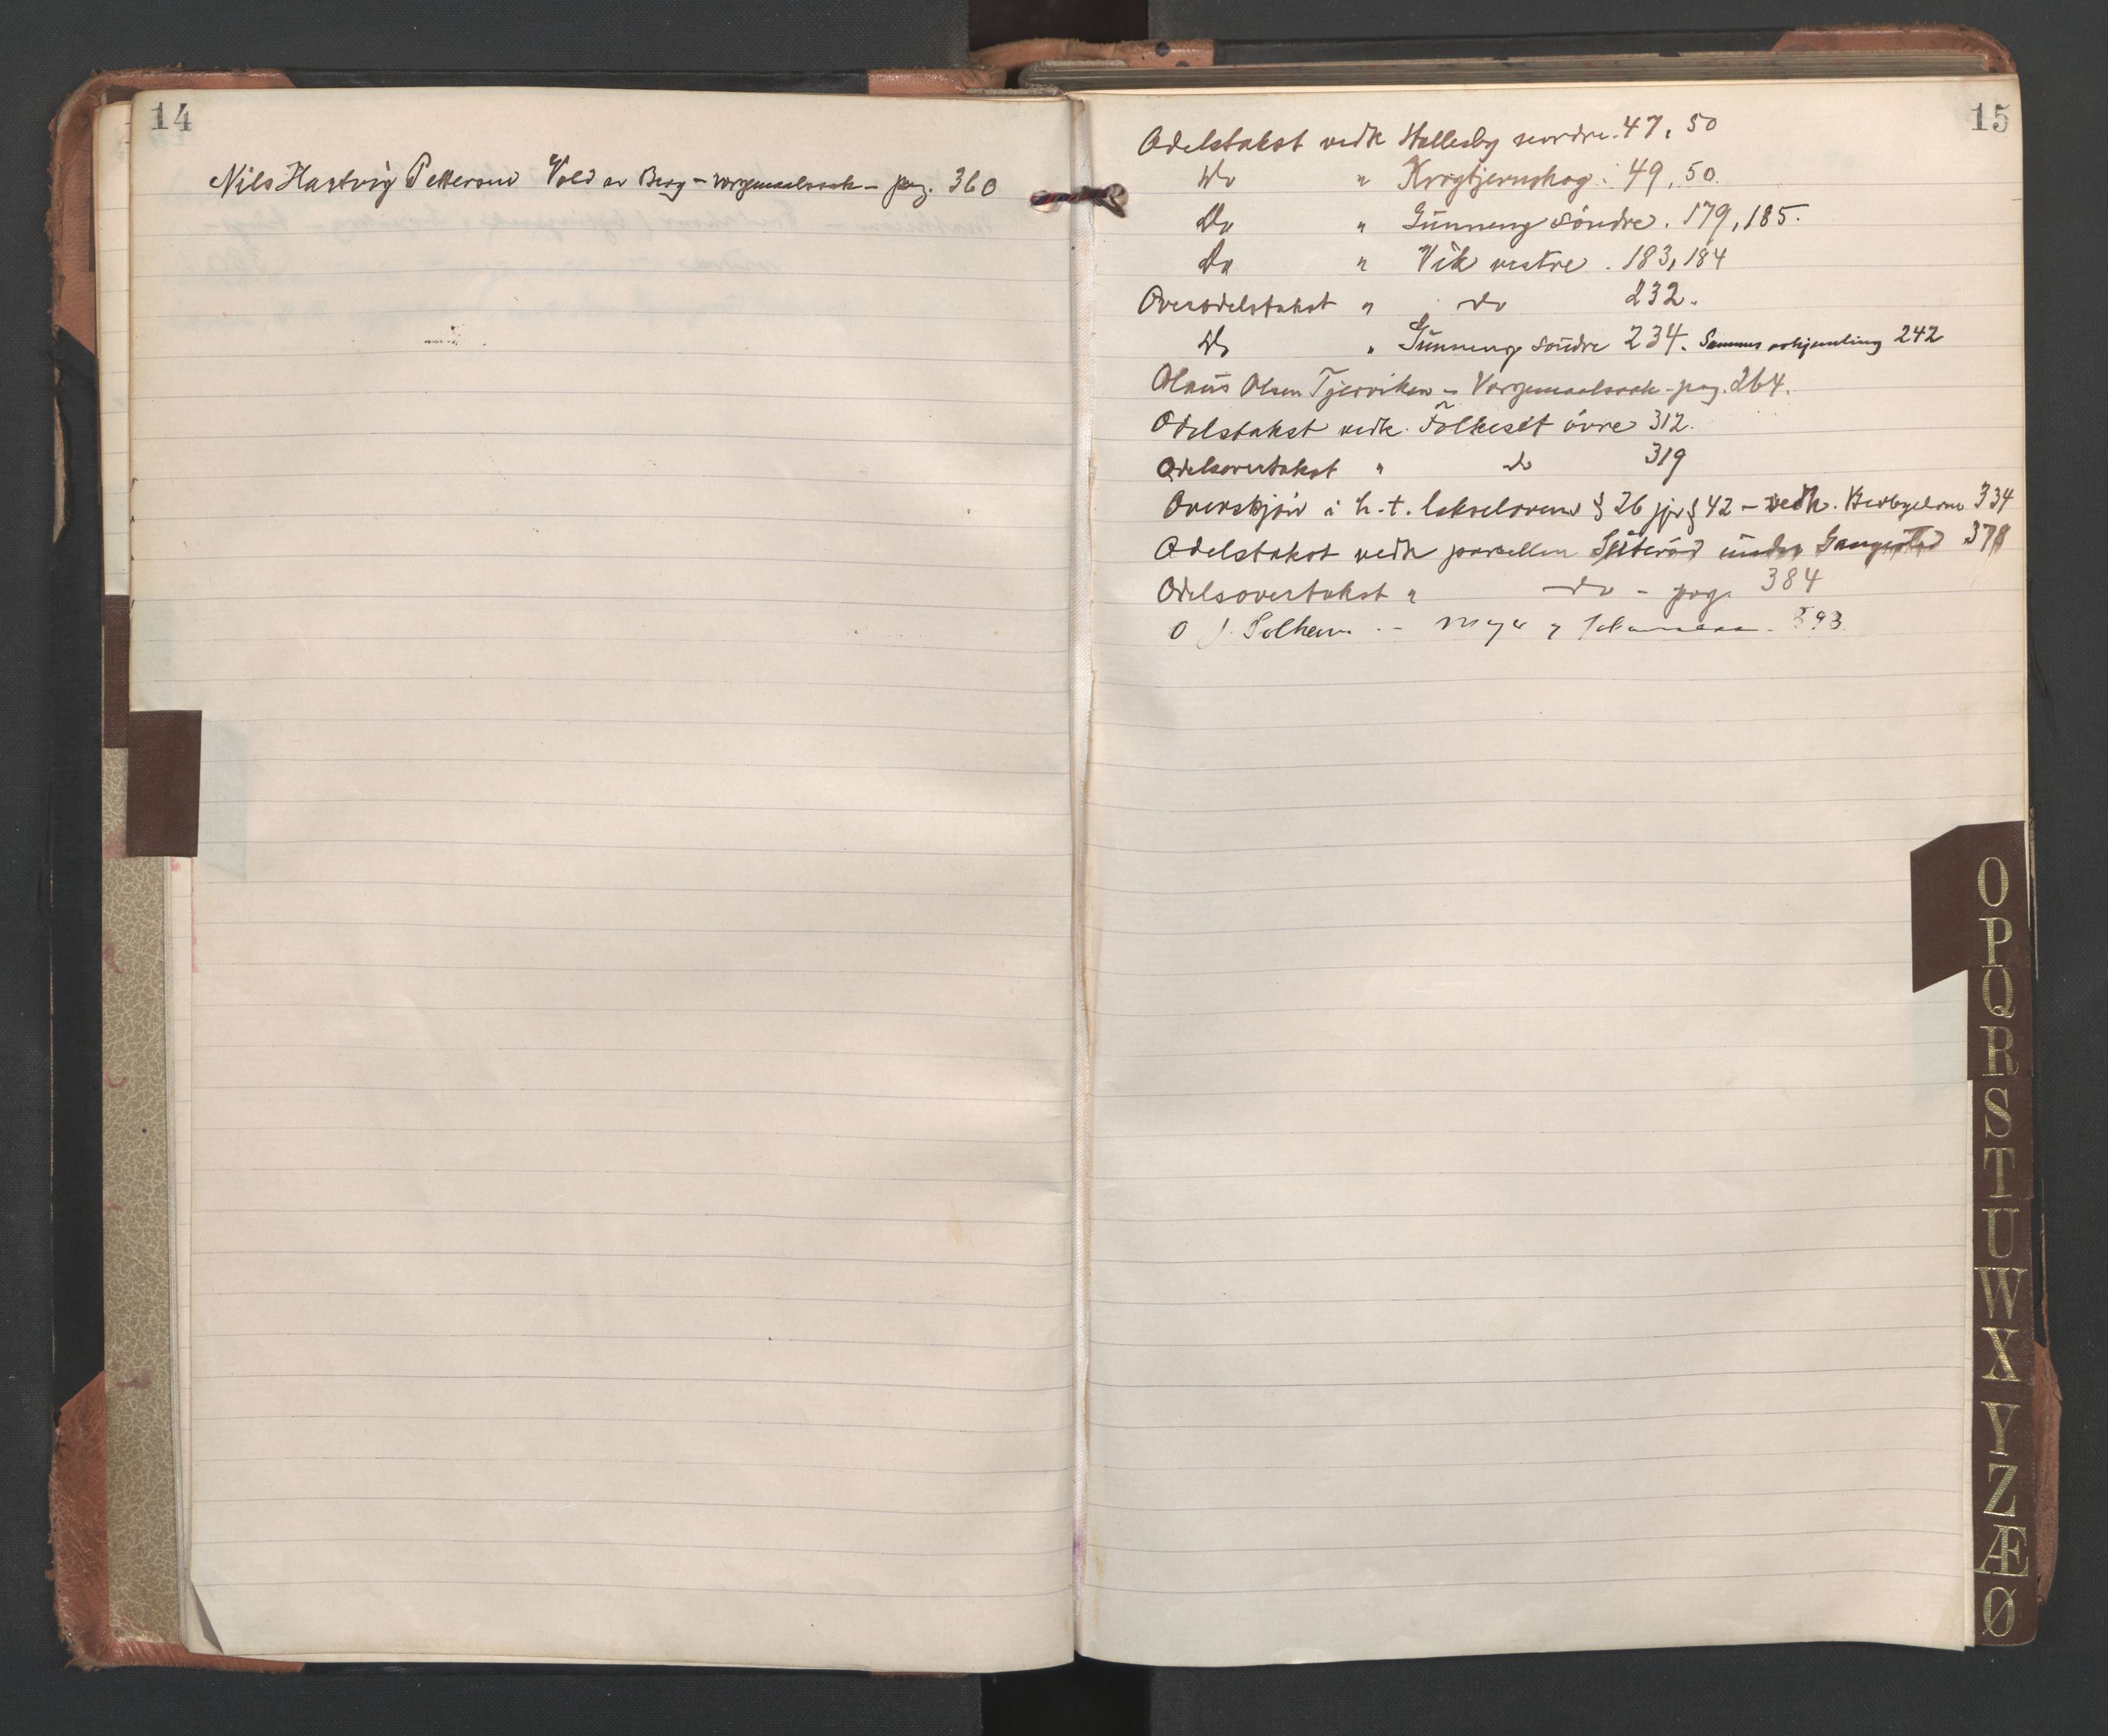 14
Nils Hartvig Petterson Vold av Berg - vergemaalssak - pag. 360
15
Odelstakst vedk Hallesby nordre. 47, 50
Do " Krogtjernshog : 49, 50.
Do " Gunneng söndre. 179, 185.
Do " Vik vestre . 183, 184
Overodelstakst " do 232.
Do " Gunneng söndre 234. Sammes avhjemling 242
Olaus Olsen Tjerviken - Vergemaalssak - pag. 264.
Odelstakst vedk. Folkesöt övre 312.
Odelsovertakst " do 319
Overskjön i h.t. lakseloven § 26 jfr § 42 - vedk. Berbyelven 334
Odelstakst vedk parsellen under 378
Odelsovertakst " do - pag. 384
O J. Solhem - Meyer 393
O
P
Q
R
S
T
U
W
X
Y
Z
Æ
Ø